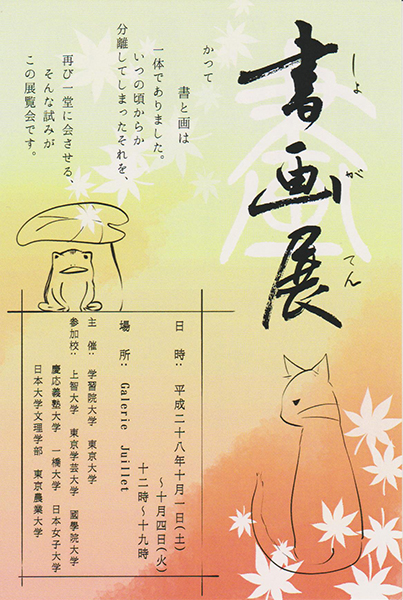 書画展
しょがてん
かつて
書と画は
一体でありました。
いつの頃からか
分離してしまったそれを、
再び一堂に会させる、
そんな試みが
この展覧会です。
日　時：　平成二十八年十月一日(土)
～十月四日(火)
十二時～十九時
場　所：　Galerie Juillet
主　催：　学習院大学　東京大学
参加校：　上智大学　東京学芸大学　國學院大学
慶応義塾大学　一橋大学　日本女子大学
日本大学文理学部　東京農業大学